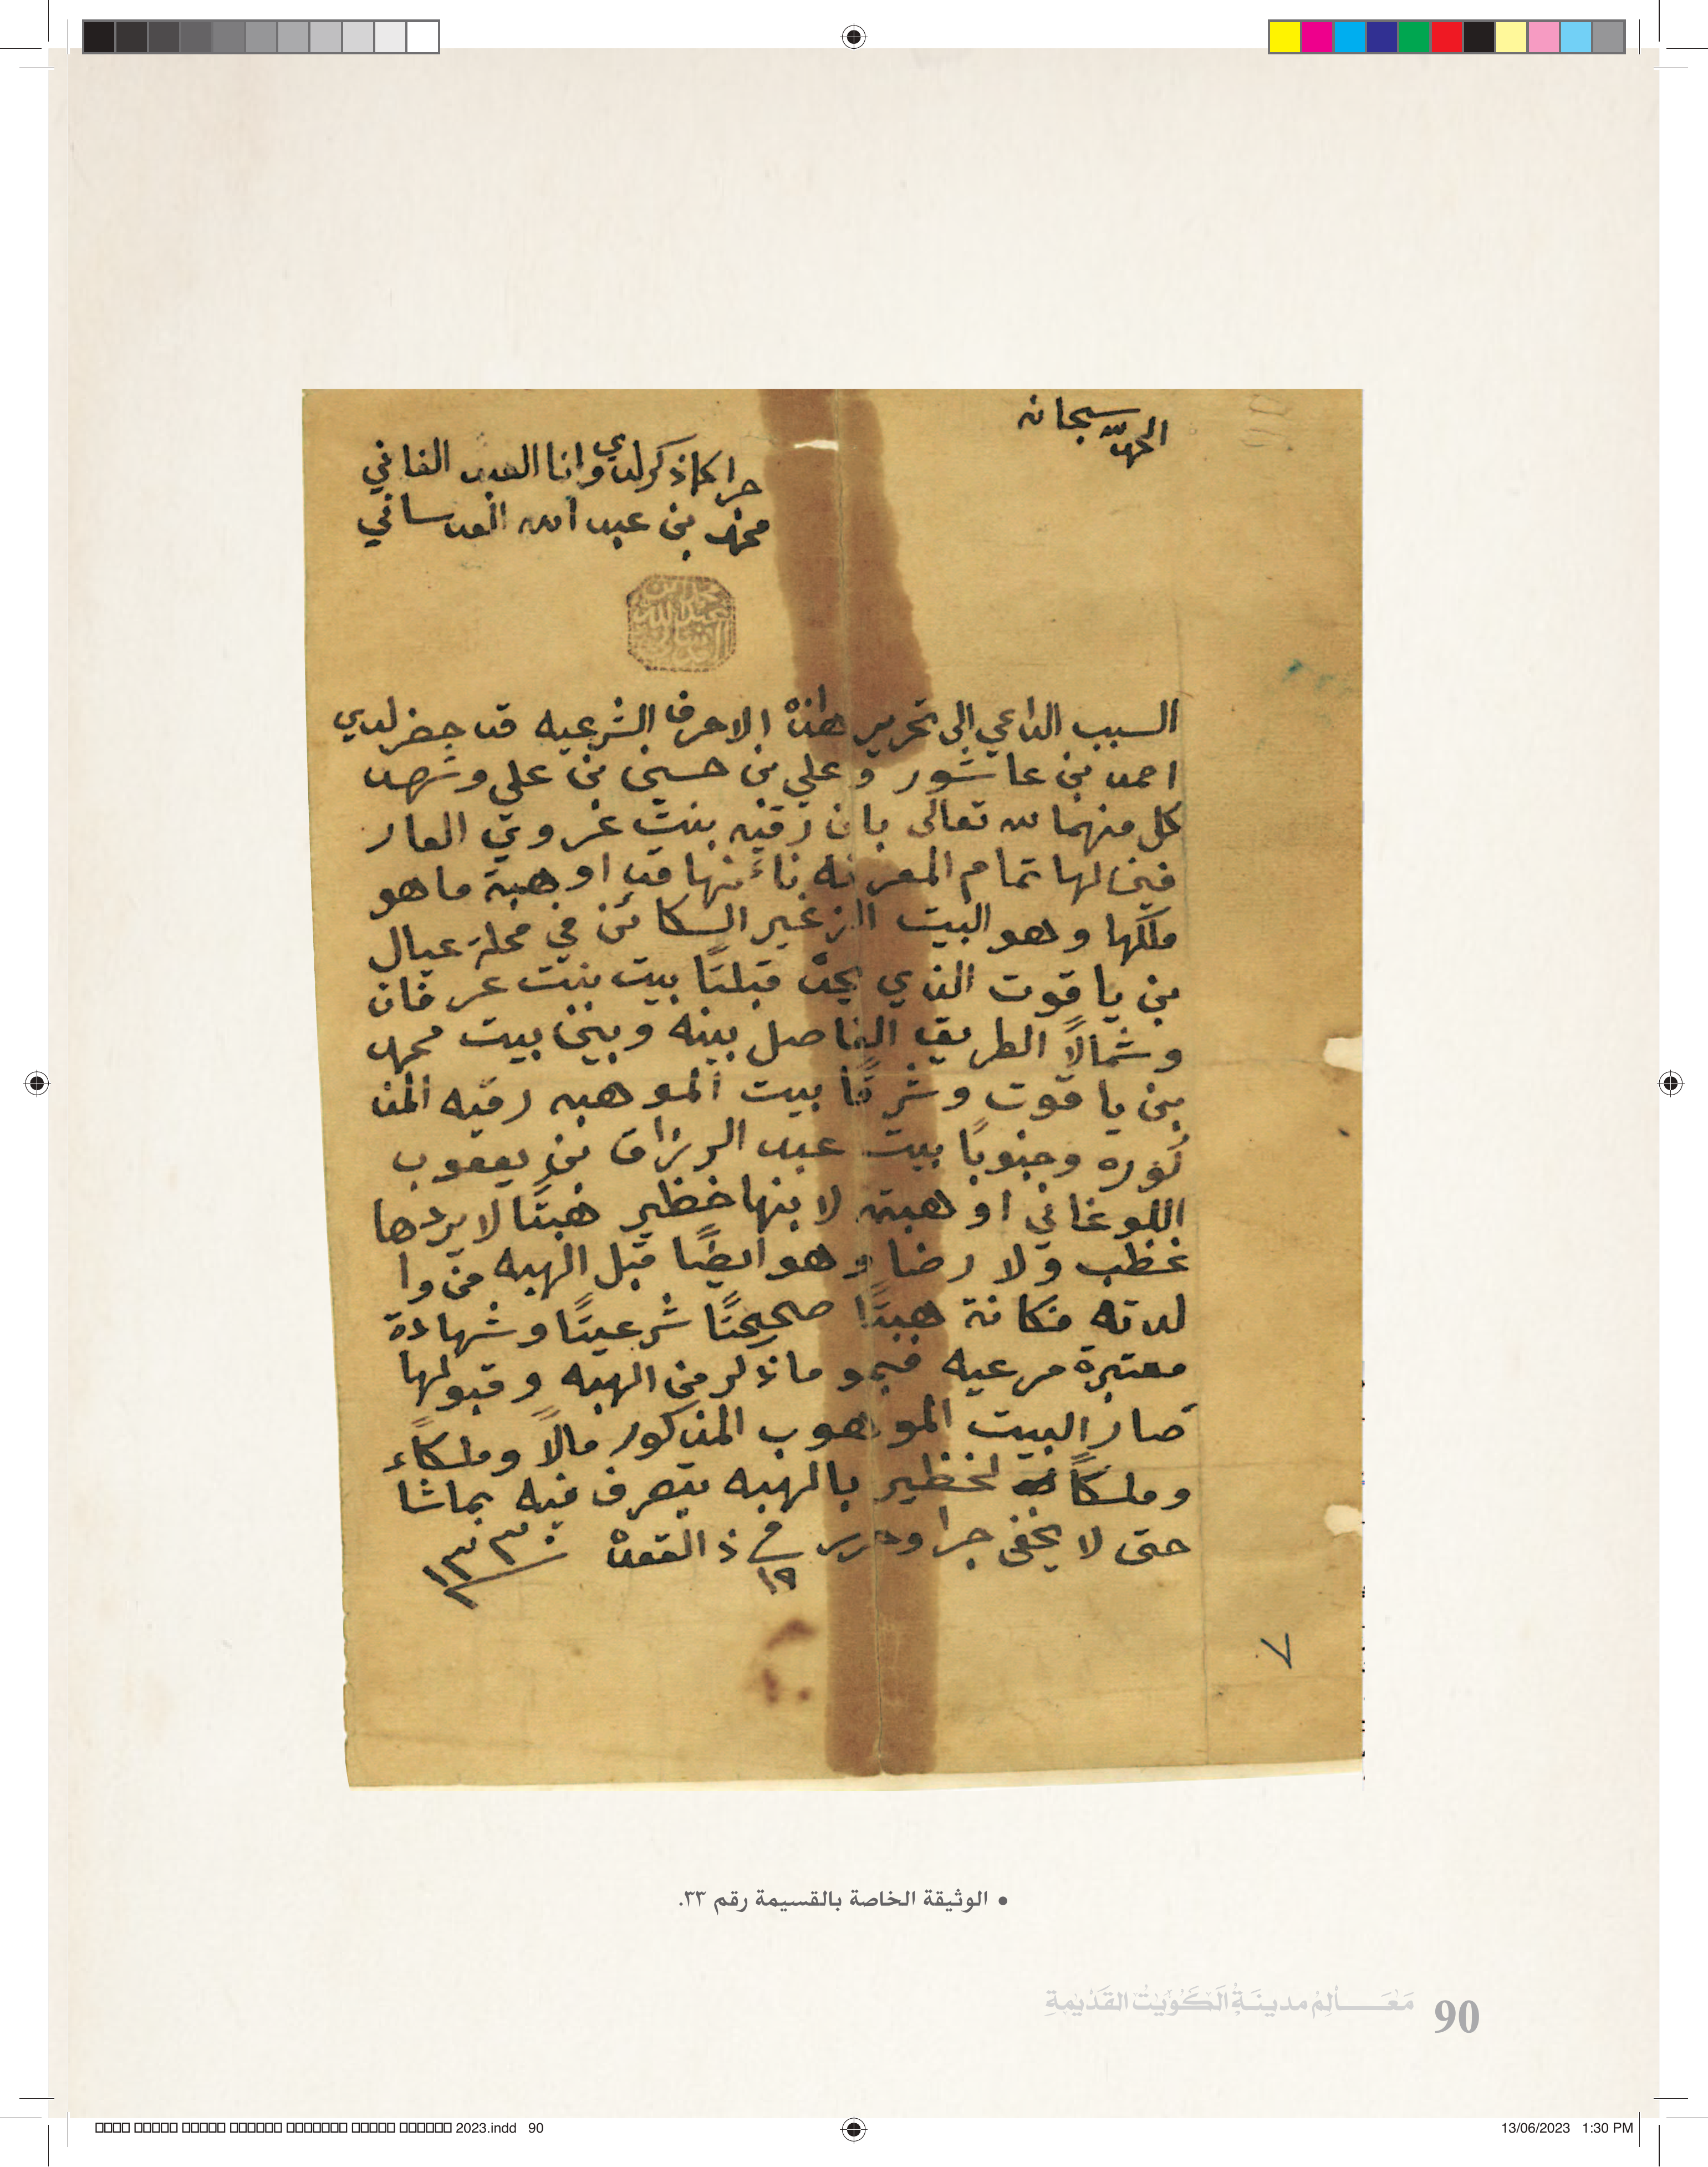 الحمد لله سبحانه
جرا كما ذكر لدي وانا العبد الفاني
محمد بن عبد الله العدساني
محمد ابن
عبد الله
العدساني
السبب الداعي الى تحرير هاذه الاحرف الشرعيه قد حضر لدي
احمد بن عاشور و علي بن حسين بن علي وشهد
كل منهما لله تعالى بان رقيه بنت غروي العار
فين لها تمام المعرفه بائنها قد اوهبة ما هو
ملكها وهو البيت الزغير الكائن في محلة عيال
بن ياقوت الذي يحده قبلتًا بيت بنت عرفان
وشمالًا الطريق الفاصل بينه وبين بيت محمد
بن ياقوت وشرقًا بيت الموهبه رقيه المذ
كوره وجنوبًا بيت عبد الرزاق بن يعقوب
اللوغاني اوهبته لابنها خظير هبتًا لا يردها
غظب ولا رضا وهو ايضًا قبل الهبه من وا
لدته فكانة هبتًا صحيحتًا شرعيتًا وشهادة
معتبرة مرعيه فبموماذكر من الهبه وقبولها
صار البيت الموهوب المذكور مالًا وملكاء
وملكًا لخظير بالهبه يتصرف فيه بماشا
حتى لا يخفى جرا وحرر في ١٩ ذ القعده ١٣٣٠
٧
• الوثيقة الخاصة بالقسيمة رقم ٣٣.
مَعَالِمُ مدينَةِ الكُوَيْتِ القَدِيمَةِ 90
2023.indd 90
13/06/2023 1:30 PM